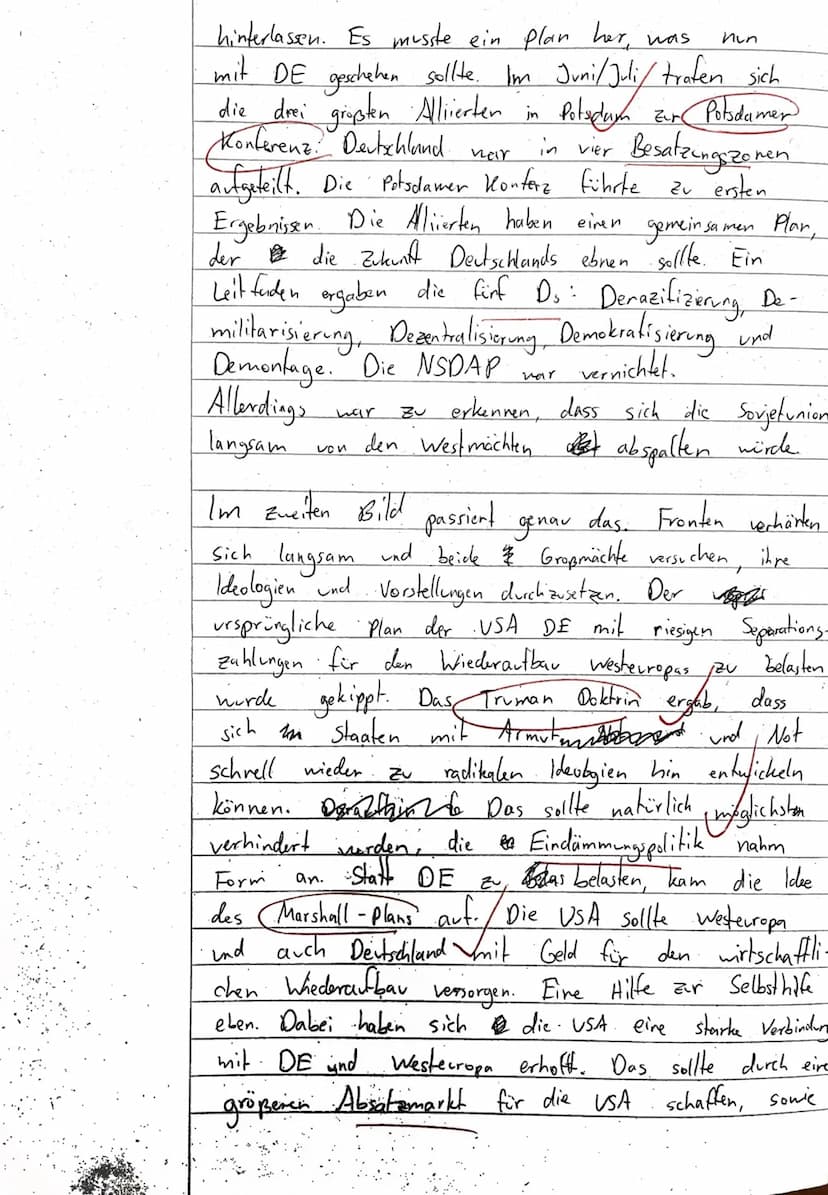 hinterlassen. Es musste ein Plan her, was nun
mit DE geschehen sollte. Im Juni/Juli trafen sich
die drei größten Alliierten in Potsdam zur Potsdamer
Konferenz. Deutschland war in vier Besatzungszonen
aufgeteilt. Die Potsdamer Konferz führte zu ersten
Ergebnissen. Die Alliierten haben einen gemeinsamen Plan,
der die Zukunft Deutschlands ebnen sollte. Ein
Leitfaden ergaben die fünf Ds: Denazifizierung, De-
militarisierung, Dezentralisierung, Demokratisierung und
Demontage. Die NSDAP war vernichtet.
Allerdings war zu erkennen, dass sich die Sovjetunion
langsam von den Westmächten abspalten würde.
Im zweiten Bild passiert genau das. Fronten verhärten
sich langsam und beide Großmächte versuchen, ihre
Ideologien und Vorstellungen durchzusetzen. Der
ursprüngliche Plan der USA DE mit riesigen Separations-
zahlungen für den Wiederaufbau Westeuropas zu belasten
wurde gekippt. Das Truman Doktrin ergab, dass
sich in Staaten mit Armut und Not
schnell wieder zu radikalen Ideologien hin entwickeln
können. Das sollte natürlich möglichst
verhindert werden, die Eindämmungspolitik nahm
Form an. Statt DE zu belasten, kam die Idee
des Marshall-Plans auf. Die USA sollte Westeuropa
und auch Deutschland mit Geld für den wirtschaftli-
chen Wiederaufbau versorgen. Eine Hilfe zur Selbsthilfe
eben. Dabei haben sich die USA eine starke Verbindung
mit DE und Westeuropa erhofft. Das sollte durch eine
größeren Absatzmarkt für die USA schaffen, sowie